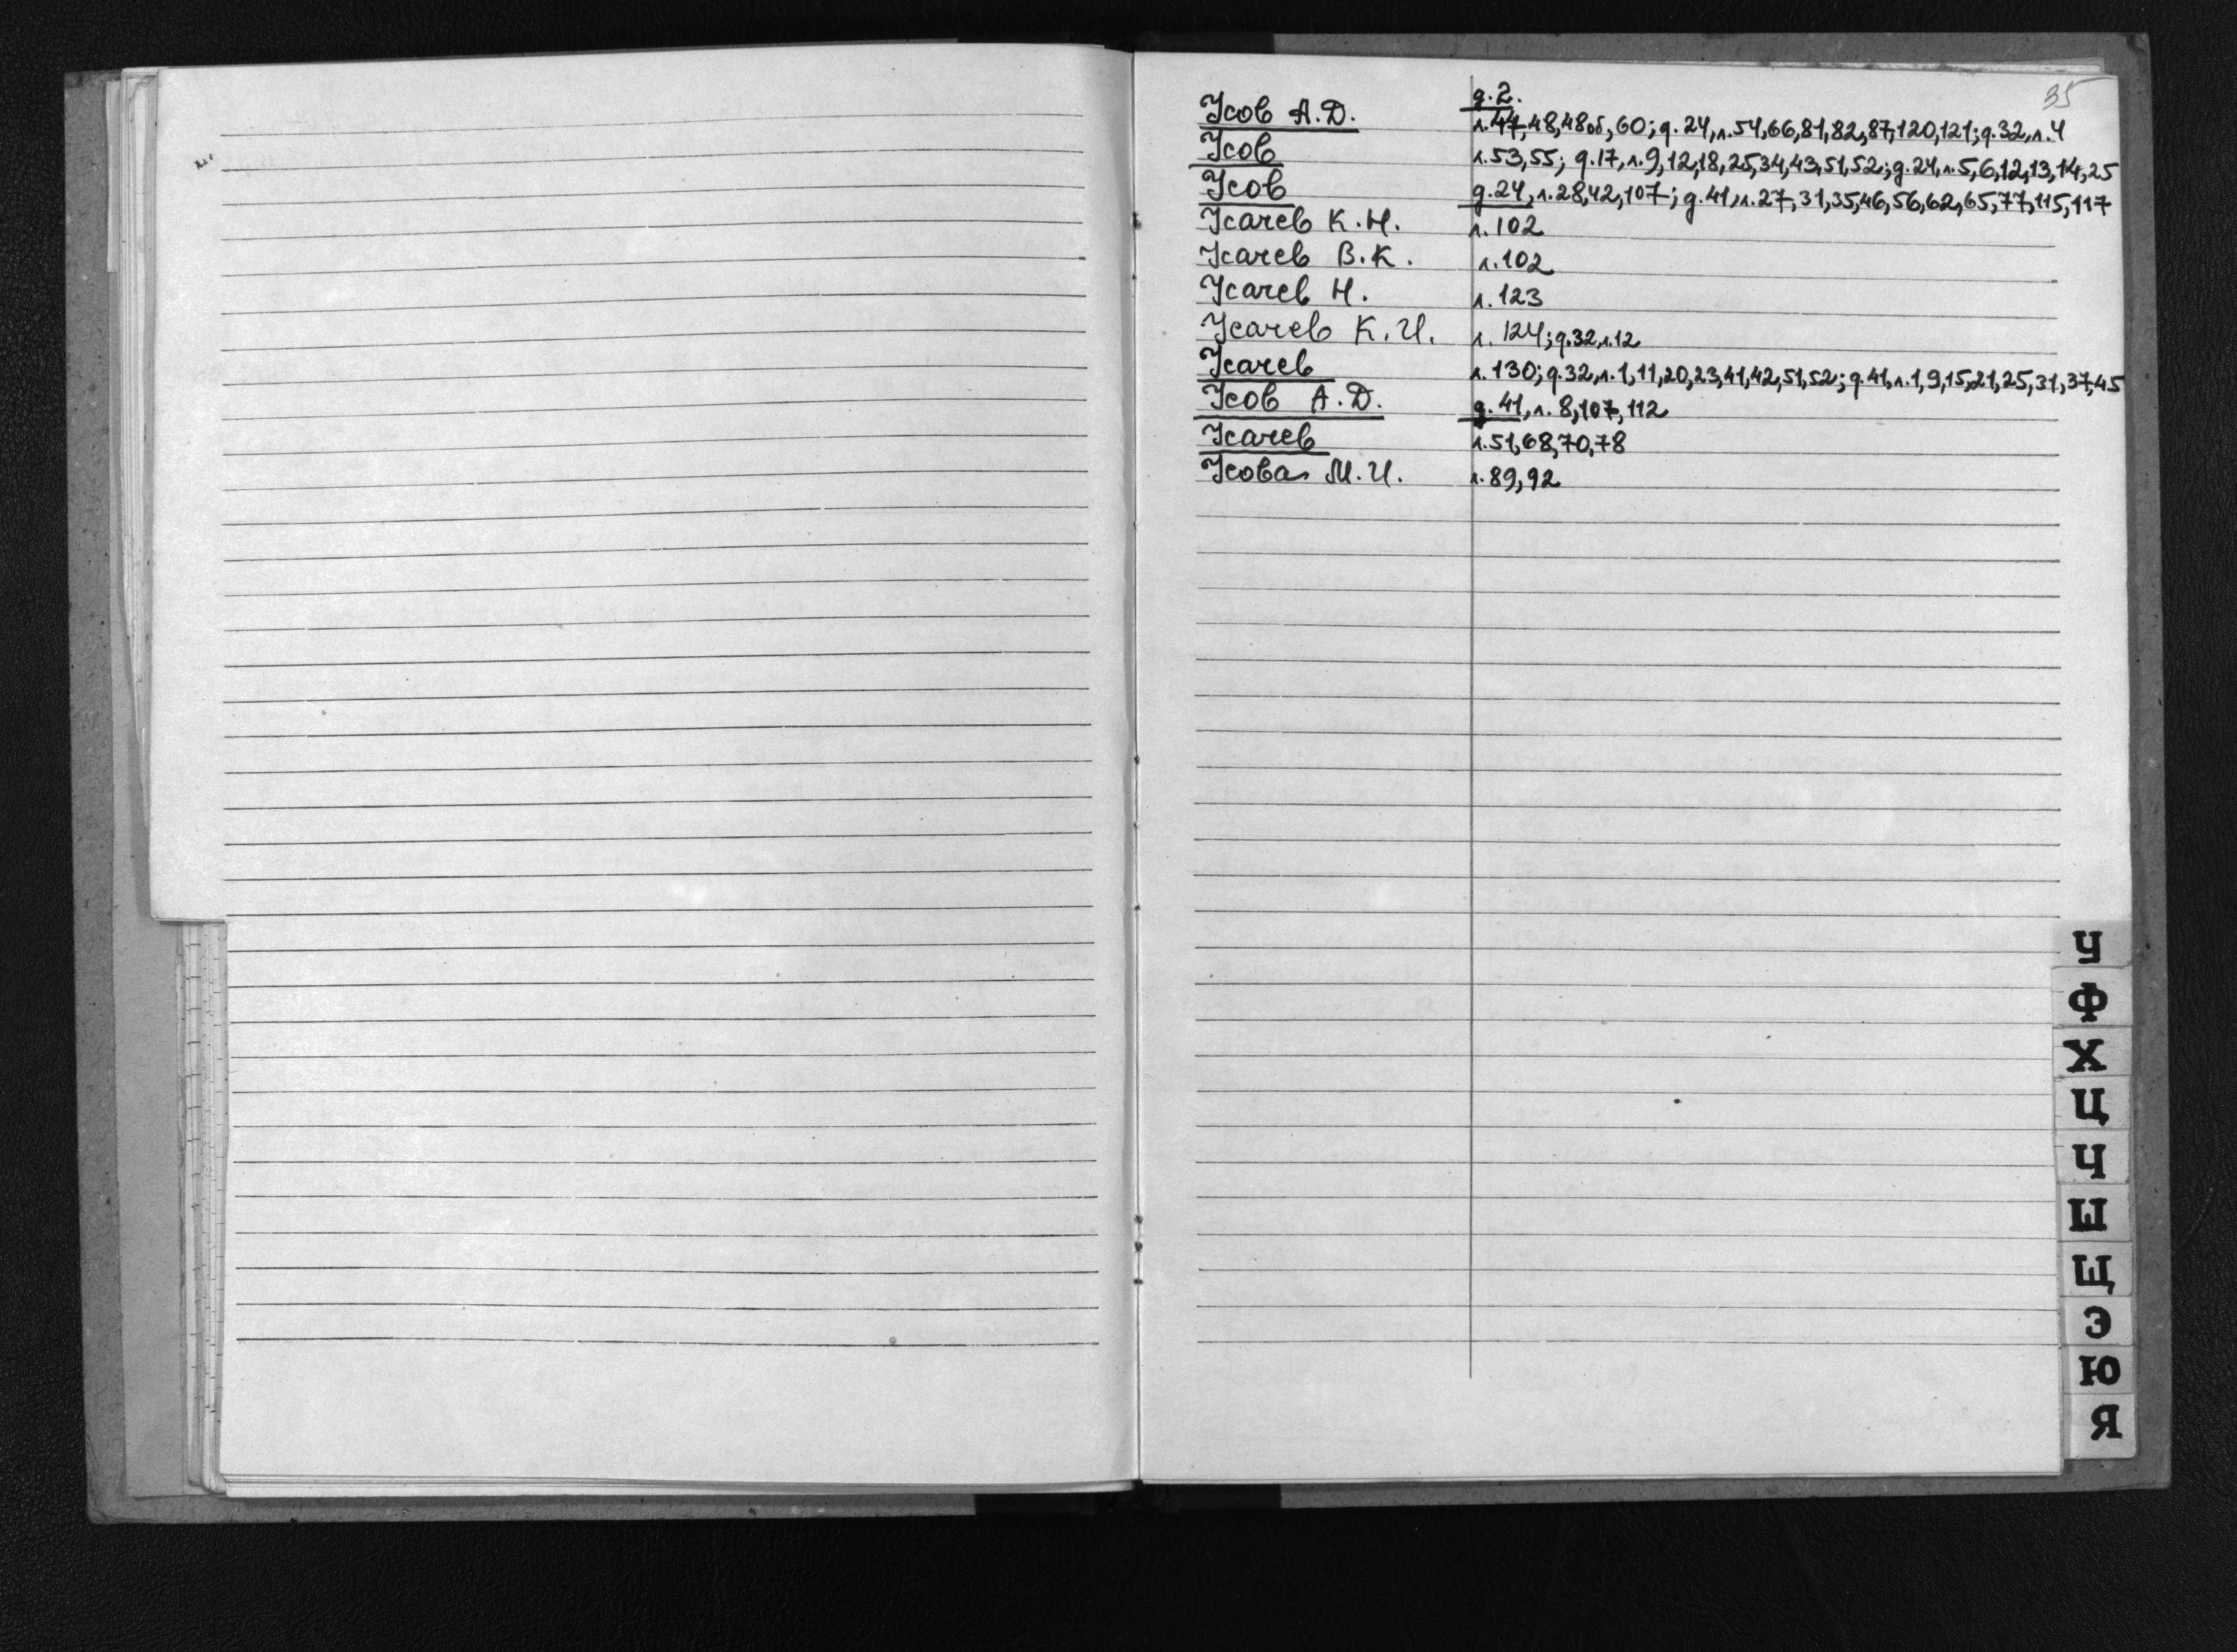 35
д.2.
Усов А.Д. л.47,48,48об,60; д.24,л.54,66,81,82,87,120,121; д.32,л.4
Усов л.53,55; д.17,л.9,12,18,25,34,43,51,52; д.24,л.5,6,12,13,14,25
Усов д.24,л.28,42,107; д.41,л.27,31,35,46,56,62,65,77,115,117
Усачев К.Н. л.102
Усачев В.К. л.102
Усачев Н. л.123
Усачев К.И. л.124; д.32,л.12
Усачев л.130; д.32,л.1,11,20,23,41,42,51,52; д.41,л.1,9,15,21,25,31,37,45
Усов А.Д. д.41,л.8,107,112
Усачев л.51,68,70,78
Усова М.И. л.89,92
У
Ф
Х
Ц
Ч
Ш
Щ
Э
Ю
Я